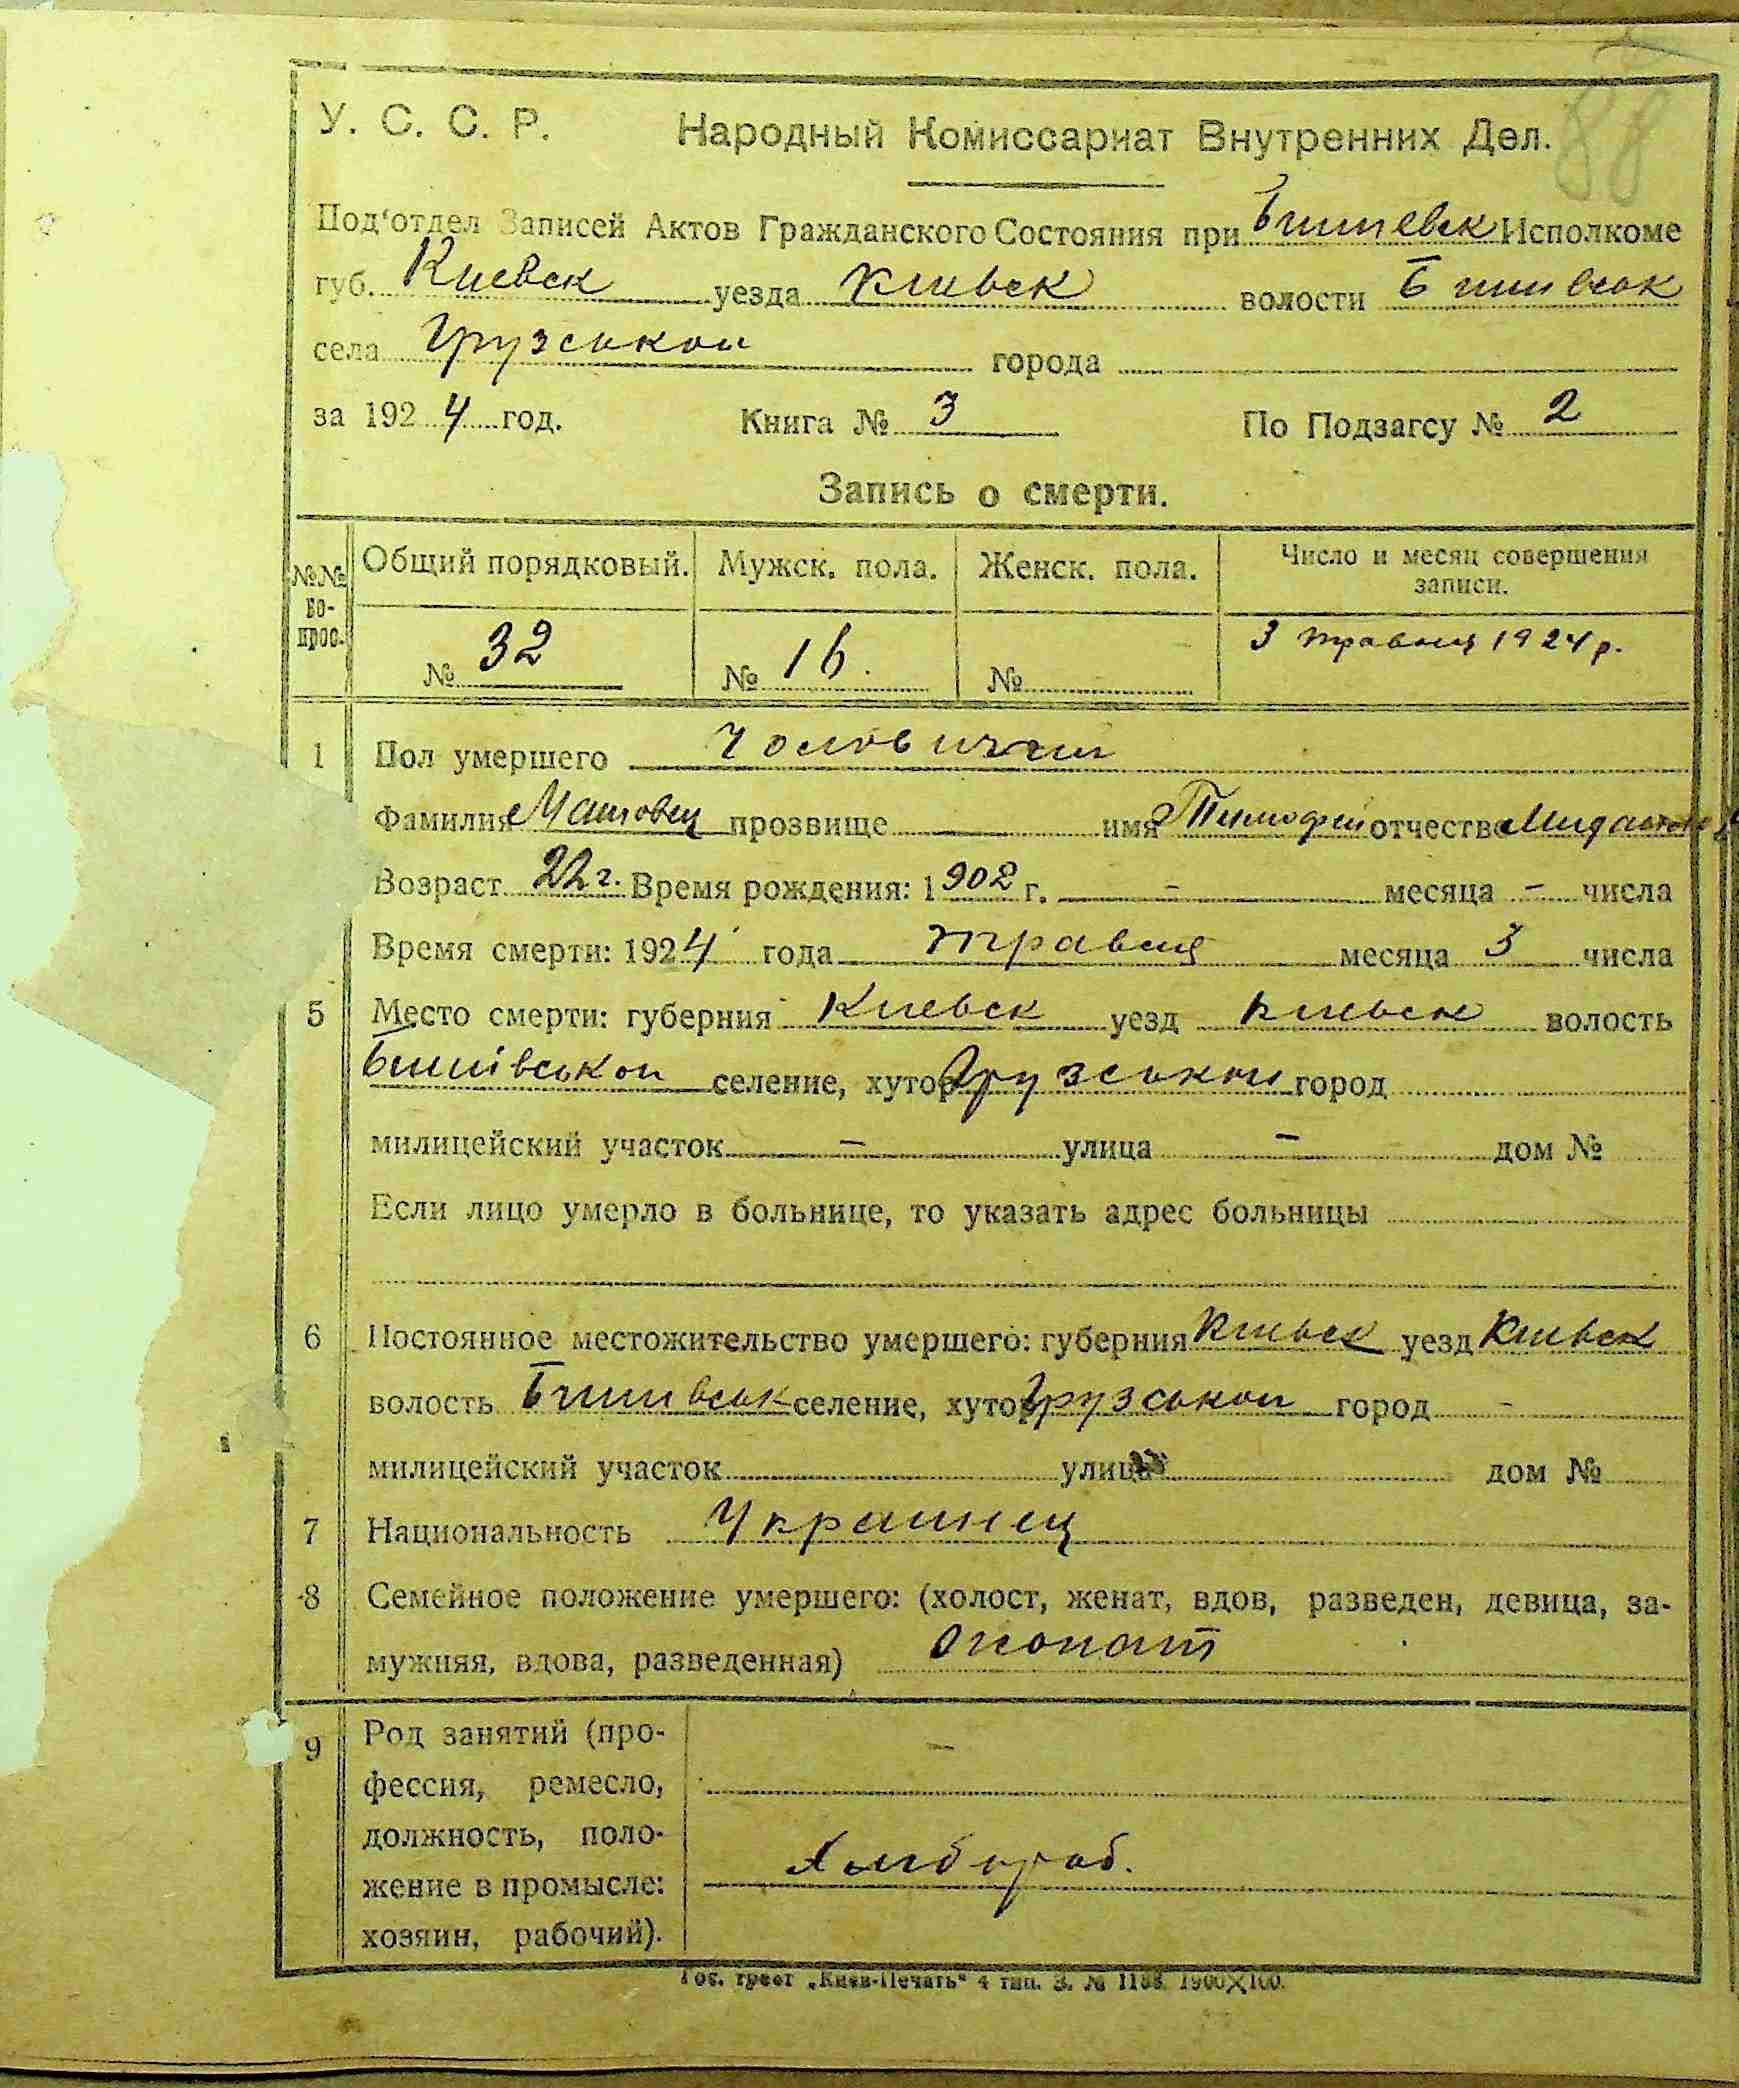 88
У. С. С. Р. Народный Комиссариат Внутренних Дел.
Под‘отдел Записей Актов Гражданского Состояния при Бишевск Исполкоме
губ. Киевск уезда Киевск волости Бишівськ
села Грузської города
за 1924 год. Книга № 3 По Подзагсу № 2
Запись о смерти.
№№ во-прос. Общий порядковый. Мужск. пола. Женск. пола. Число и месяц совершения записи.
№ 32 № 16. № 3 травня 1924 р.
1 Пол умершего Чоловичий
Фамилия прозвище имя Тимофій отчество
Возраст 22 г. Время рождения: 1902 г. - месяца - числа
Время смерти: 1924 года травня месяца 3 числа
5 Место смерти: губерния Киевск уезд Киевск волость
Бишівської селение, хутор Грузської город
милицейский участок - улица - дом №
Если лицо умерло в больнице, то указать адрес больницы
6 Постоянное местожительство умершего: губерния Киевск уезд Киевск
волость Бишівськ селение, хутор Грузської город -
милицейский участок улица дом №
7 Национальность Украинец
8 Семейное положение умершего: (холост, женат, вдов, разведен, девица, за-
мужняя, вдова, разведенная) Ожонат
9 Род занятий (про- -
фессия, ремесло,
должность, поло-
жение в промысле: Хлібороб.
хозяин, рабочий).
Гос. трест „Киев-Печать“ 4 тип. З. № 1188. 1900×100.